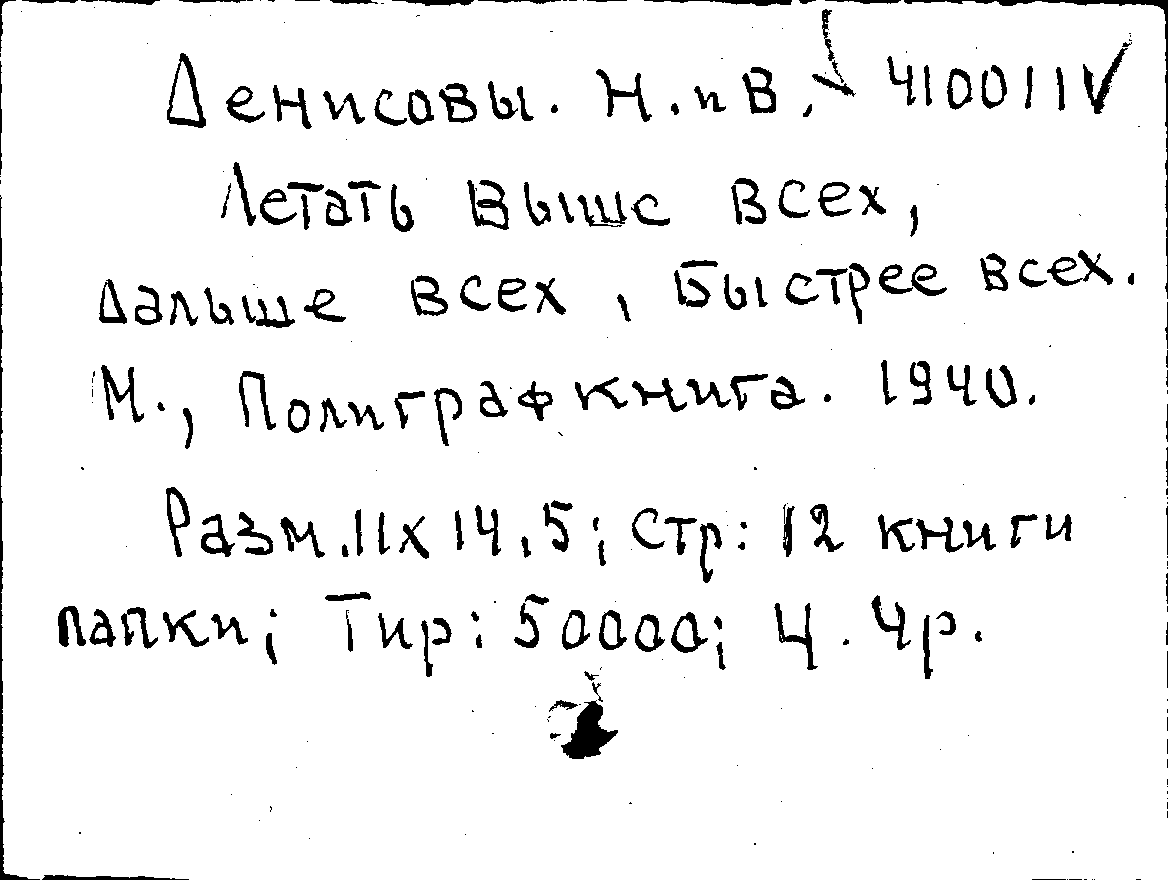 Денисовы. Н. и В. 410011
Летать Выше всех,
дальше всех, Быстрее всех.
М., Полиграфкнига. 1940.
Разм. 11х14,5; Стр: 12 книги
папки; Тир: 50000; Ц. 4р.